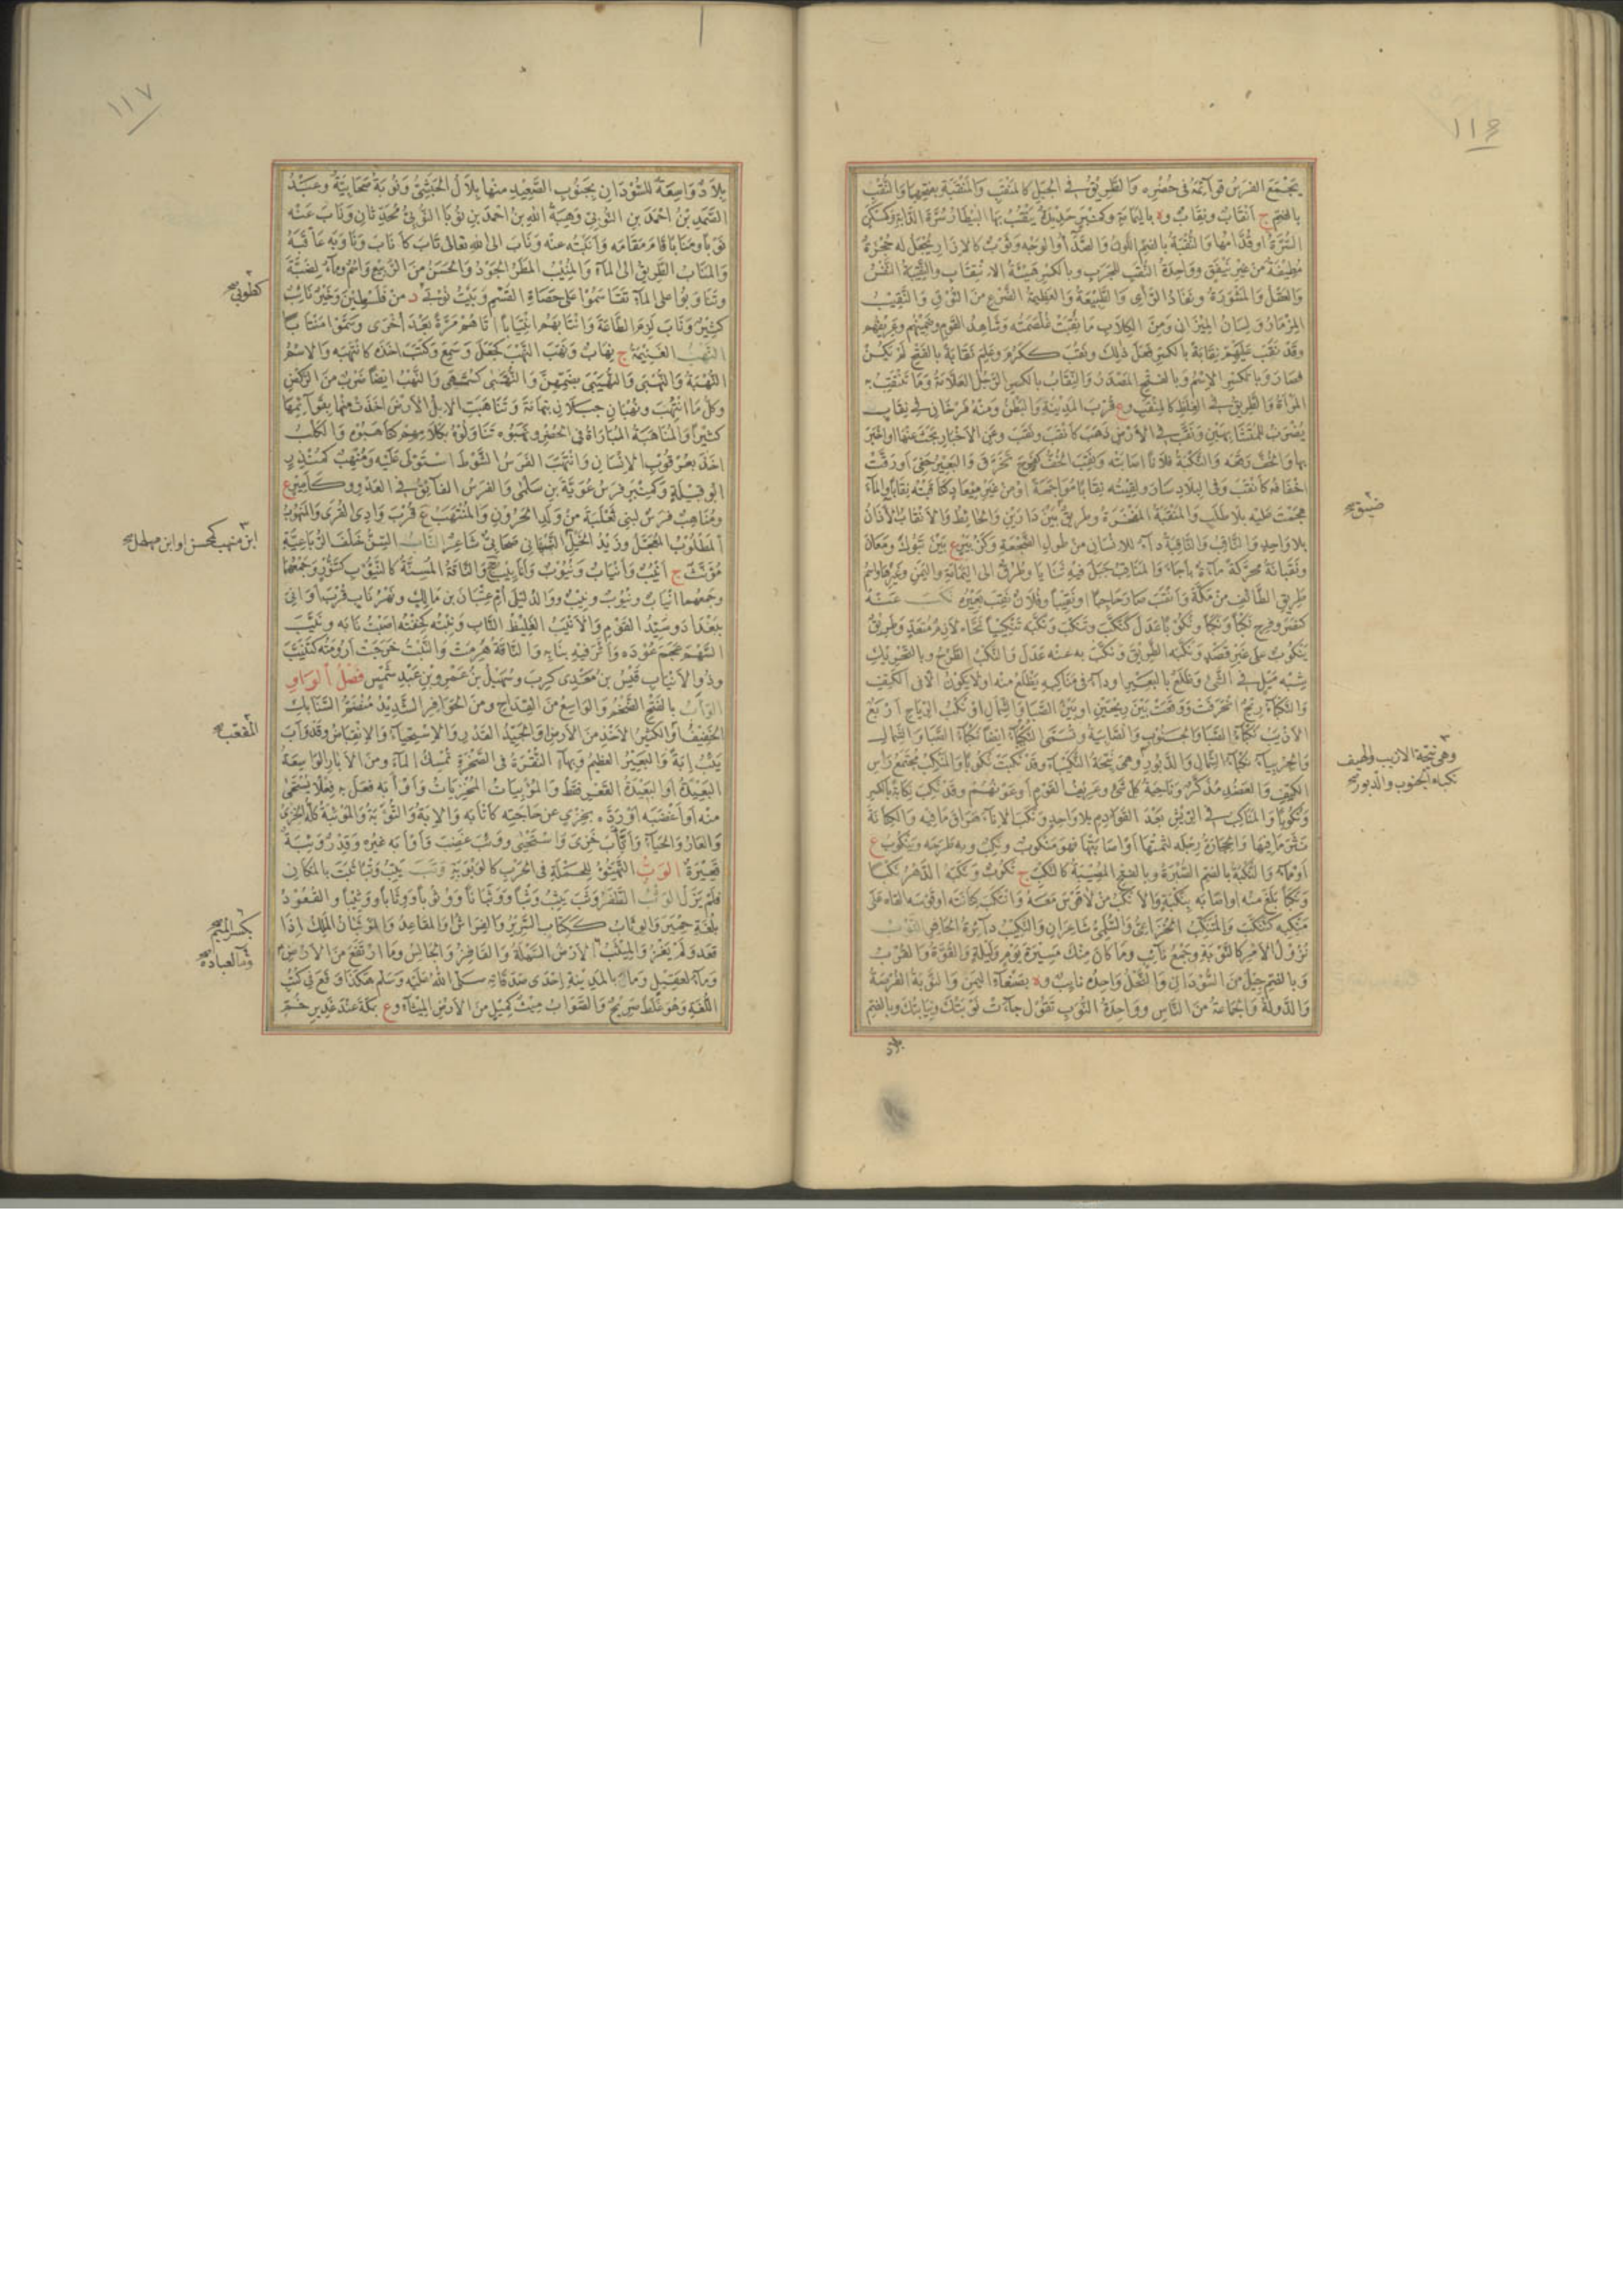 يَجْمَعَ الفرَسُ قوآئمَهُ فى حُضْرِه والطَّرِيقُ فى الجَبَلِ كالمَنْقَبِ والمَنْقَبَةِ بفتحِهِما والنُّقْبِ
بالضمّ ج اَنْقابٌ ونِقابٌ وه باليَمامَةِ وكمِنْبَرٍ حَدِيدَةٌ يَنْقُبُ بها البَيْطارُ سُرَّةَ الدّابَّةِ وكمَكَنٍ
السُّرَّةُ اَوقُدّامُها والنُّقْبَةُ بالضم اللَّونُ والصَّدَأُ والوَجْهُ وثَوْبٌ كالاِزارِ يُجْعَلُ له حُجْزَةٌ
مُطِيفَةٌ من غيرِ نَيْفَقٍ وواحِدَةُ النُّقْبِ للجَرَبِ وبالكسرِ هَيْئَةُ الانْتِقابِ والنَّقِيبَةُ النَّفْسُ
والعَقْلُ والمَشُورَةُ ونَفاذُ الرَّأْىِ والطَّبِيعَةُ والعَظِيمَةُ الضَّرْعِ من النُّوقِ والنَّقِيبُ
المِزْمارُ ولسانُ المِيزانِ ومن الكِلابِ ما نُقِبَتْ غَلْصَمَتُه وشاهِدُ القَومِ وضَمِينُهُم وعَرِيفُهُم
وقد نَقَبَ عليهم نِقابَةً بالكسر فَعَلَ ذلِكَ ونَقُبَ ككَرُمَ وعَلِمَ نَقابَةً بالفتح لم يَكُنْ
فصارَ وبالكسرِ الاِسْمُ وبالفتحِ المَصْدَرُ والنِّقابُ بالكسرِ الرَّجُلُ العَلاَّمَةُ وما تَنْتَقِبُ به
المرأةُ والطَّرِيقُ فى الغِلَظِ كالمِنْقَبِ وع قُرْبَ المَدِينَةِ والبَطْنُ ومنه فَرْخانِ فى نِقابٍ
يُضْرَبُ للمُتَشابِهَيْنِ ونَقَّبَ فى الاَرْضِ ذَهَبَ كاَنْقَبَ ونَقَبَ وعن الاَخْبارِ بَحَثَ عنها اواَخْبَرَ
بها والخُفَّ رَقَعَه والنَّكْبَةُ فلانًا اصابَتْه ونَقِبَ الخُفُّ كفَرِحَ تَخَرَّقَ والبَعِيرُ حَفِىَ اَورَقَّتْ
اَخْفافُه كاَنْقَبَ وفى البِلادِ سارَ ولَقِيتُه نِقابًا مُواجَهَةً اَومن غيرِ مِيعادٍ كناقَبْتُه نِقابًا والماءَ
هَجَمْتُ عليه بلا طَلَبٍ والمَنْقَبَةُ المَفْخَرَةُ وطَرِيقٌ بين دارَيْنِ والحائِطُ والاَنْقابُ الآذانُ
بلا واحِدٍ والنّاقِبُ والنّاقِبَةُ دآءٌ للانسانِ من طُولِ الضَّجْعَةِ وكزُبَيْرٍ ع بين تَبُوكَ ومَعانَ
ونَقَبانَةُ محرّكةً مآءَةٌ بأجَاَ والمَناقِبُ جَبَلٌ فيه ثَنايا وطُرُقٌ الى اليَمامَةِ واليَمَنِ وغَيرِها واسمُ
طَرِيقِ الطّائِفِ من مَكَّةَ واَنْقَبَ صارَ حاجِبًا اونَقِيبًا وفُلانٌ نَقِبَ بَعِيرُه نَكَبَ عنه
كنَصَرَ وفَرِحَ نَكْبًا ونَكَبًا ونُكُوبًا عَدَلَ كنَكَّبَ وتَنَكَّبَ ونَكَّبَه تَنْكِيبًا نَحّاه لازِمٌ مُتَعَدٍّ وطَرِيقٌ
يَنْكُوبٌ على غَيرِ قَصْدٍ ونَكَّبَه الطَّرِيقَ ونَكَّبَ به عنه عَدَلَ والنَّكْبُ الطَّرْحُ وبالتَّحْرِيكِ
شِبْهُ مَيْلٍ فى الشَّىْءِ وظَلَعٌ بالبَعِيرِ اودآءٌ فى مَناكِبِه يَظْلَعُ منه اولايكونُ الاّ فى الكَتِفِ
والنَّكْبآءُ رِيحٌ انْحَرَفَتْ ووَقَعَتْ بين رِيحَيْنِ اوبين الصَّبا والشَّمالِ اونُكْبُ الرِّياحِ اَرْبَعٌ
الاَزْيَبُ نَكْبآءُ الصَّبا والجَنُوبِ والصّابِيَةُ وتُسَمَّى النُّكَيْبآءَ ايضًا نَكْبآءُ الصَّبا والشَّمالِ
والجِرْبِيآءُ نَكْبآءُ الشَّمالِ والدَّبُورِ وهى نَيِّحَةُ النُّكَيْبآءِ وقد نَكَبَتْ نُكُوبًا والمَنْكِبُ مُجْتَمَعُ رأسِ
الكَتِفِ والعَضُدِ مُذَكَّرٌ وناحِيَةُ كُلِّ شَىْءٍ وعَرِيفُ القَوْمِ اَوعَوْنُهُم وقد نَكَبَ نِكابَةً بالكسر
ونُكُوبًا والمَناكِبُ فى الرِّيشِ بَعْدَ القَوادِمِ بلا واحدٍ ونَكَبَ الاِناءَ هَراقَ مافيه والكِنانَةَ
نَثَرَ مافيها والحِجارَةُ رِجْلَه لَثَمَتْها اَواَصابَتْها فهو مَنْكُوبٌ ونَكِبٌ وبه طَرَحَه ويَنْكُوبٌ ع
اَومآءٌ والنُّكْبَةُ بالضم الصُّبْرَةُ وبالفتح المُصِيبَةُ كالنَّكْبِ ج نُكُوبٌ ونَكَبَه الدَّهْرُ نَكْبًا
ونَكَبًا بَلَغَ منه اواصابَه بنَكْبَةٍ والاَنْكَبُ من لاقَوْسَ معه وانْتَكَبَ كِنانَتَه اوقَوْسَه القاه على
مَنْكِبِه كتَنَكَّبَ والمُتَنَكِّبُ الخُزاعىُّ والسُّلَمِىُّ شاعِرانِ والنَّكِيبُ دآئِرَةُ الحافِرِ النَّوْبُ
نُزُولُ الاَمْرِ كالنَّوْبَةِ وجَمْعُ نآئِبٍ وما كانَ مِنْكَ مَسِيرَةَ يَوْمٍ ولَيْلَةٍ والقُوَّةُ والقُرْبُ
وبالضم جِيلٌ من السُّودانِ والنَّحْلُ واحِدُه نائِبٌ وه بصَنْعآءِ اليَمَنِ والنَّوْبَةُ الفُرْصَةُ
والدَّوْلَةُ والجَماعَةُ من النّاسِ وواحِدَةُ النُّوَبِ تَقُولُ جآءَتْ نَوْبَتُكَ ونِيابَتُكَ وبالضم
بلاد
ضيق صح
وهى نيّحة الازيب والهيف
نكباء الجنوب والدبور صح
١١٧
بِلادٌ واسِعَةٌ للسُّودانِ بجَنُوبِ الصَّعِيدِ منها بِلالٌ الحَبَشِىُّ ونُوبَةُ صَحابِيَّةٌ وعبدُ
الصَّمَدِ بنُ احمَدَ بنِ النُّوبِىِّ وهِبَةُ اللهِ بنُ احمَدَ بنِ نُوبَا النُّوبِىُّ مُحَدِّثانِ ونابَ عنه
نَوْبًا ومَنابًا قامَ مَقامَه واَنَبْتُه عنه ونابَ الى اللهِ تعالى تابَ كاَنابَ وناوَبَه عاقَبَهُ
والمَنابُ الطَّرِيقُ الى المآءِ والمُنِيبُ المَطَرُ الجَوْدُ والحَسَنُ من الرَّبِيعِ واسْمٌ ومآءٌ لضَبَّةَ
وتَناوَبُوا على المآءِ تَقاسَمُوا على حَصاةِ القَسْمِ وبَيْتُ نُوبَى د من فَلَسْطِينَ وخَيْرٌ نائِبٌ
كثِيرٌ ونابَ لَزِمَ الطّاعَةَ وانْتابَهُم انْتِيابًا اتاهُم مَرَّةً بعدَ اُخْرَى وسَمَّوْا مُنْتابًا
النَّهْبُ الغَنِيمَةُ ج نِهابٌ ونَهَبَ النَّهْبَ كجَعَلَ وسَمِعَ وكَتَبَ اَخَذَه كانْتَهَبَه والاِسْمُ
النُّهْبَةُ والنُّهْبَى والنُّهَيْبَى بضمِّهِنَّ والنُّهَّيْبَى كسُمَّيْهَى والنَّهْبُ ايضًا ضَرْبٌ من الرَّكْضِ
وكلُّ ما انْتُهِبَ ونَهْبانِ جَبَلانِ بتِهامَةَ وتَناهَبَتِ الاِبِلُ الاَرْضَ اَخَذَتْ منها بقَوآئِمِها
كثِيرًا والمُناهَبَةُ المُباراةُ فى الحُضْرِ ونَهَبُوه تَناوَلُوهُ بكَلامِهِم كناهَبُوه والكَلْبُ
اَخَذَ بعُرْقُوبِ الانسانِ وانْتَهَبَ الفَرَسُ الشَّوْطَ استَولَى عليه ومُنْهِبٌ كمُنْذِرٍ
ابُو قَبِيلَةٍ وكمِنْبَرٍ فَرَسُ عُوَيَّةَ بنِ سَلْمَى والفَرَسُ الفآئِقُ فى العَدْوِ وكاَمِيرٍ ع
ومُناهِبٌ فَرَسٌ لبَنِى ثَعْلَبَةَ من وَلَدِ الحَرُونِ والمُنْتَهَبُ ع قُرْبَ وادِى القُرَى والمَنْهُوبُ
المَطْلُوبُ المُعَجَّلُ وزَيْدُ الخَيْلِ النَّبْهانِى صَحابِىٌّ شاعِرٌ النّابُ السِّنُّ خَلْفَ الرَّباعِيَةِ
مُؤَنَّثٌ ج اَنْيُبٌ واَنْيابٌ ونُيُوبٌ واَنايِيبُ جج والنّاقَةُ المُسِنَّةُ كالنَّيُّوبِ كتَنُّورٍ وجَمْعُها
وجمعهما اَنْيابٌ ونُيُوبٌ ونِيبٌ ووالِدُ لَيْلَى اُمِّ عِتْبانَ بنِ مالِكٍ ونَهْرُ نابٍ قُرْبَ اَوانَى
ببَغْدادَ وسَيِّدُ القَوْمِ والاَنْيَبُ الغَلِيظُ النّابِ ونِبْتُه كخِفْتُه اَصَبْتُ نابَه ونَيَّبَ
السَّهْمَ عَجَمَ عُودَه واَثَّرَ فيه بنابِه والنّاقَةُ هَرِمَتْ والنَّبْتُ خَرَجَتْ اَرُومَتُه كتَنَيَّبَ
وذُو الاَنْيابِ قَيْسُ بنُ مَعْدِى كَرِبَ وسُهَيْلُ بنُ عَمْرِو بنِ عَبْدِ شَمْسٍ فَصْلُ الوَاوِ
الوَأْبُ بالفتح الضَّخْمُ والواسِعُ من القِداحِ ومن الحَوافِرِ الشَّدِيدُ مُنْضَمُّ السَّنابِكِ
الخَفِيفُ اَوالكثِيرُ الاَخْذِ من الاَرضِ اَوالجَيِّدُ القَدْرِ والاِسْتِحْيآءُ والاِنْقِباضُ وقد وَأَبَ
يَئِبُ اِبَةً والبَعِيرُ العظِيمُ وبهآءٍ النُّقْرَةُ فى الصَّخْرَةِ تُمْسِكُ المآءَ ومن الآبارِ الواسِعَةُ
البَعِيدَةُ اَوالبَعِيدَةُ القَعْرِ فقط والمُوئِباتُ المُخْزِياتُ واَوْأَبَه فَعَلَ به فِعْلًا يُسْتَحْيَى
منه اَواَغْضَبَه اَورَدَّه بخِزْىٍ عن حاجَتِه كاَتْأَبَه والاِبَةُ والتُّؤَبَةُ والمَوْئِبَةُ كلُّه الخِزْىُ
والعارُ والحَيآءُ واتَّأَبَ خَزِىَ واسْتَحْيَى ووَئِبَ غَضِبَ واَوْأَبَه غيرُه وقِدْرٌ وَئِيبَةٌ
قَعِيرَةٌ الوَبُّ التَّهَيُّؤُ للحَمْلَةِ فى الحَرْبِ كالوَبْوَبَةِ وَتَبَ يَتِبُ وَتْبًا ثَبَتَ بالمَكانِ
فلم يَزُلْ الوَثْبُ الطَّفْرُ وَثَبَ يَثِبُ وَثْبًا ووَثَبانًا ووُثُوبًا ووِثابًا ووَثِيبًا والقُعُودُ
بلُغَةِ حِمْيَرَ والوِثابُ ككِتابٍ السَّرِيرُ والفِراشُ والمَقاعِدُ والمَوْثَبانُ المَلِكُ اِذا
قَعَدَ ولم يَغْزُ والمِيثَبُ الاَرْضُ السَّهْلَةُ والقافِزُ والجالِسُ وما ارْتَفَعَ من الاَرْضِ
ومآءٌ لعُقَيْلٍ ومالٌ بالمَدِينَةِ اِحْدَى صَدَقاتِه صلى اللهُ عليه وسلم هكذا وقَعَ فى كُتُبِ
اللُّغَةِ وهو غَلَطٌ صَرِيحٌ والصَّوابُ مِيثٌ كمِيلٍ من الاَرضِ المَيْثآءِ وع بمَكَّةَ عند غَدِيرِ خُمٍّ
كطوبى صح
ابن منهب كمحسن او ابن مهلهل صح
المقعّب صح
بكسر الميم صح